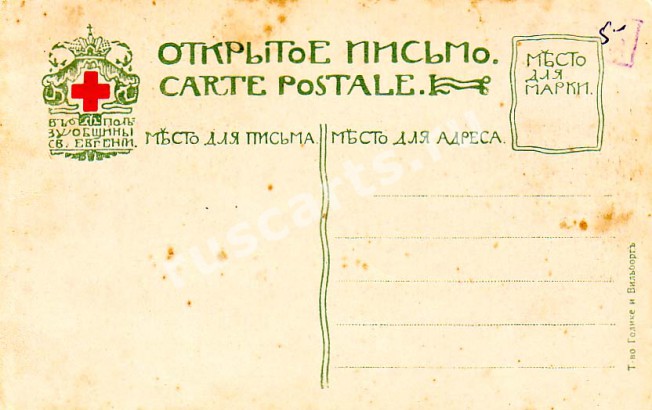 ОТКРЫТОЕ ПИСЬМО.
CARTE POSTALE.
МѢСТО
ДЛЯ
МАРКИ.
5-
ВЪ ПОЛЬ
ЗУ ОБЩИНЫ
СВ. ЕВГЕНІИ.
МѢСТО ДЛЯ ПИСЬМА.
МѢСТО ДЛЯ АДРЕСА.
Т-во Голике и Вильборгъ
ruscarts.ru